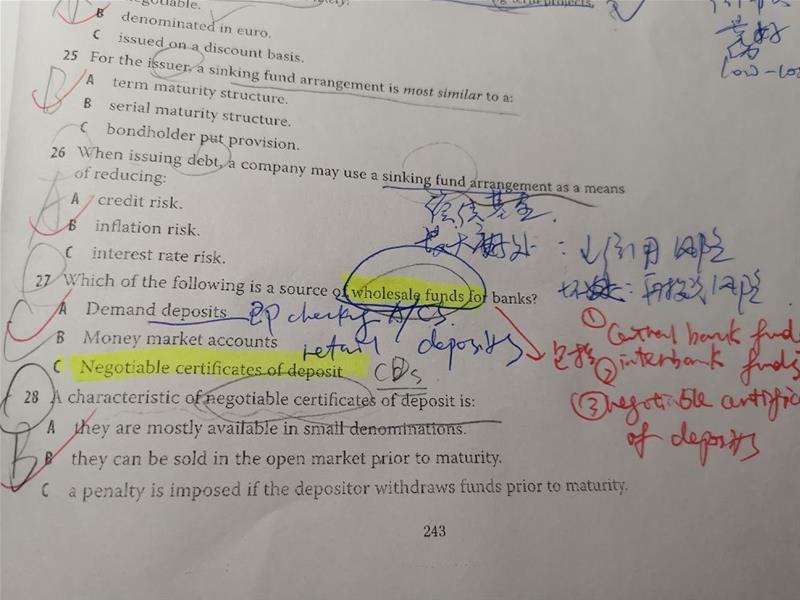 negotiable.
B denominated in euro.
C issued on a discount basis.
25 For the issuer, a sinking fund arrangement is most similar to a:
A term maturity structure.
B serial maturity structure.
C bondholder put provision.
B
26 When issuing debt, a company may use a sinking fund arrangement as a means
of reducing:
A credit risk.
B inflation risk.
C interest rate risk.
A
偿债基金.
最大好处：↓信用风险
坏处：再投资风险
27 Which of the following is a source of wholesale funds for banks?
A Demand deposits
即 checking A/CS.
B Money market accounts
retail deposits
C Negotiable certificates of deposit
CDs
C
包括
① Central bank fund
② interbank funds
③ negotiable certific
of deposits
28 A characteristic of negotiable certificates of deposit is:
A they are mostly available in small denominations.
B they can be sold in the open market prior to maturity.
C a penalty is imposed if the depositor withdraws funds prior to maturity.
B
243